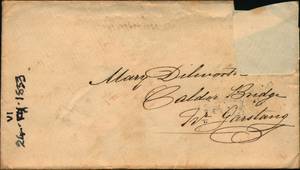 Mary Dilworth
Calder Bridge
Nr Garstang
VI
24 1853